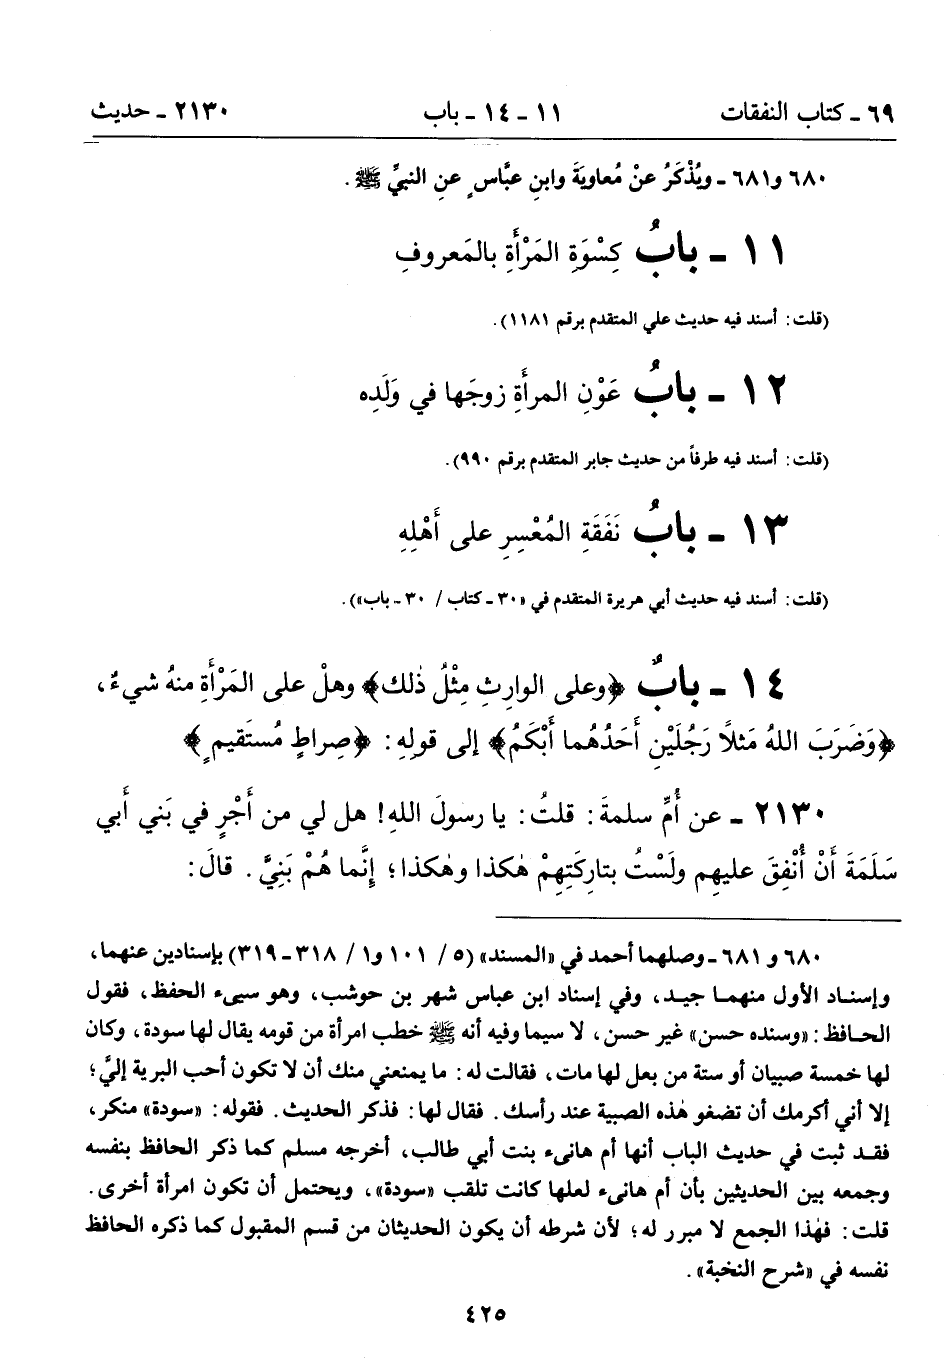 ٦٩ ـ كتاب النفقات ١١ ـ ١٤ ـ باب ٢١٣٠ ـ حديث
٦٨٠ و٦٨١ ـ ويُذْكَرُ عنْ مُعاويَةَ وابنِ عبَّاسٍ عنِ النبيِّ ﷺ.
١١ ـ بابُ كِسْوَةِ المَرْأَةِ بالمَعروفِ
(قلت: أسند فيه حديث علي المتقدم برقم ١١٨١).
١٢ ـ بابُ عَوْنِ المرأَةِ زوجَها في وَلَدِه
(قلت: أسند فيه طرفاً من حديث جابر المتقدم برقم ٩٩٠).
١٣ ـ بابُ نَفَقَةِ المُعْسِرِ على أَهْلِهِ
(قلت: أسند فيه حديث أبي هريرة المتقدم في «٣٠ ـ كتاب / ٣٠ ـ باب»).
١٤ ـ بابٌ ﴿وعلى الوارِثِ مِثْلُ ذٰلك﴾ وهلْ على المَرْأَةِ منهُ شيءٌ،
﴿وَضَرَبَ اللهُ مَثلاً رَجُلَيْنِ أَحَدُهُما أَبْكَمُ﴾ إلى قولِهِ: ﴿صِراطٍ مُستَقيمٍ﴾
٢١٣٠ ـ عن أُمِّ سلمةَ: قلتُ: يا رسولَ اللهِ! هل لي من أَجْرٍ في بَني أَبي
سَلَمَةَ أَنْ أُنْفِقَ عليهِم ولَسْتُ بتارِكَتِهِمْ هٰكذا وهٰكذا؛ إِنَّما هُمْ بَنِيَّ. قالَ:
٦٨٠ و ٦٨١ ـ وصلهما أحمد في «المسند» (٥ / ١٠١ و١ / ٣١٨ ـ ٣١٩) بإسنادين عنهما،
وإسناد الأول منهما جيد، وفي إسناد ابن عباس شهر بن حوشب، وهو سيىء الحفظ، فقول
الحافظ: «وسنده حسن» غير حسن، لا سيما وفيه أنه ﷺ خطب امرأة من قومه يقال لها سودة، وكان
لها خمسة صبيان أو ستة من بعل لها مات، فقالت له: ما يمنعني منك أن لا تكون أحب البرية إليَّ؛
إلا أني أكرمك أن تضغو هٰذه الصبية عند رأسك. فقال لها: فذكر الحديث. فقوله: «سودة» منكر،
فقد ثبت في حديث الباب أنها أم هانىء بنت أبي طالب، أخرجه مسلم كما ذكر الحافظ بنفسه
وجمعه بين الحديثين بأن أم هانىء لعلها كانت تلقب «سودة»، ويحتمل أن تكون امرأة أخرى.
قلت: فهٰذا الجمع لا مبرر له؛ لأن شرطه أن يكون الحديثان من قسم المقبول كما ذكره الحافظ
نفسه في «شرح النخبة».
٤٢٥